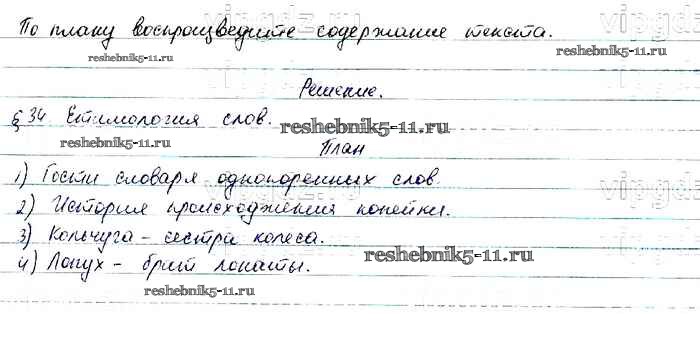 По плану воспроизведите содержание текста.
vipgdz
reshebnik5-11.ru
reshebnik5-11.ru
Решение.
§ 34 Етимология слов.
reshebnik5-11.ru
reshebnik5-11.ru
План
1) Гости словаря однокоренных слов.
vipgdz
2) История происхождения копейки.
3) Кольчуга – сестра колеса.
4) Лопух – брат лопаты.
reshebnik5-11.ru
reshebnik5-11.ru
vipgdz